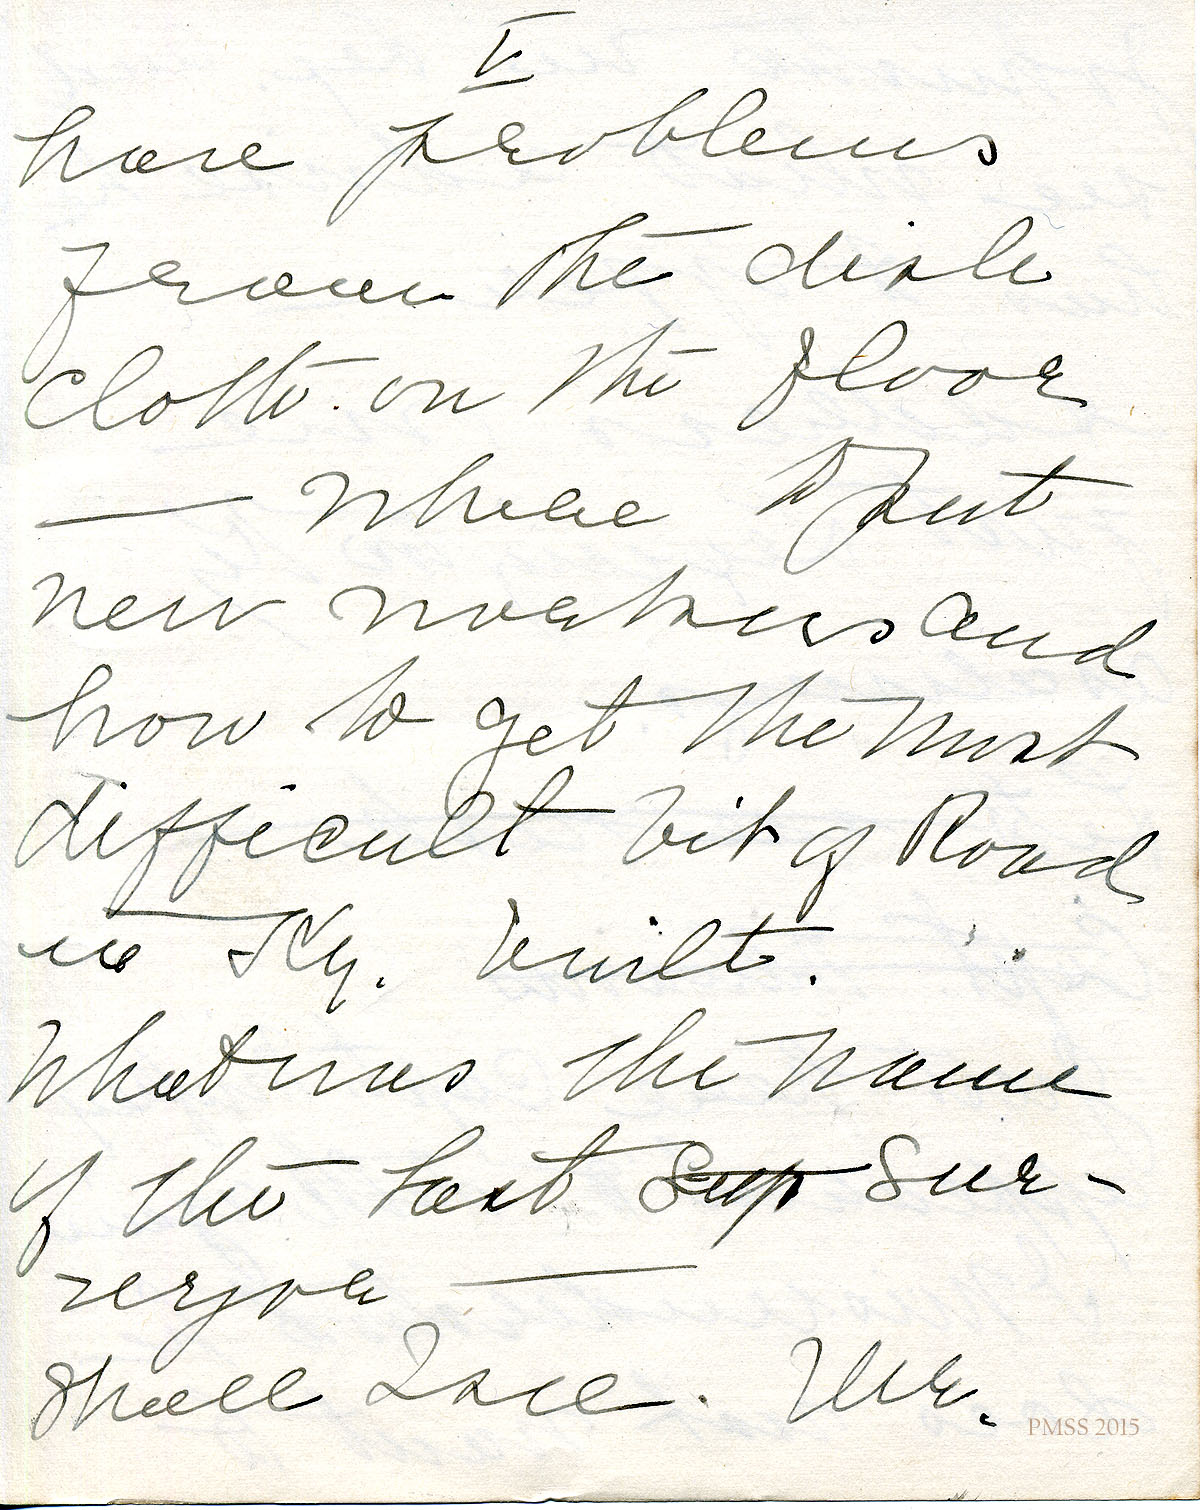 V
have problems
from the dish
cloth. on the floor
— where to put
new workers and
how to get the most
difficult bit of Road
in Ky. built.
What was the name
of the last Sup Sur-
veyor —
Shall I see. Mr.
PMSS 2015